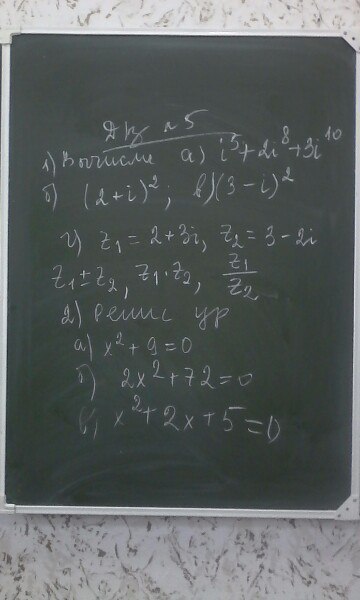 Д/з №5
1) Вычисли а) i⁵+2i⁸+3i¹⁰
б) (2+i)²; в) (3-i)²
г) z₁=2+3i, z₂=3-2i
z₁±z₂, z₁·z₂, z₁/z₂
2) Решис ур
а) x²+9=0
б) 2x²+72=0
в) x²+2x+5=0